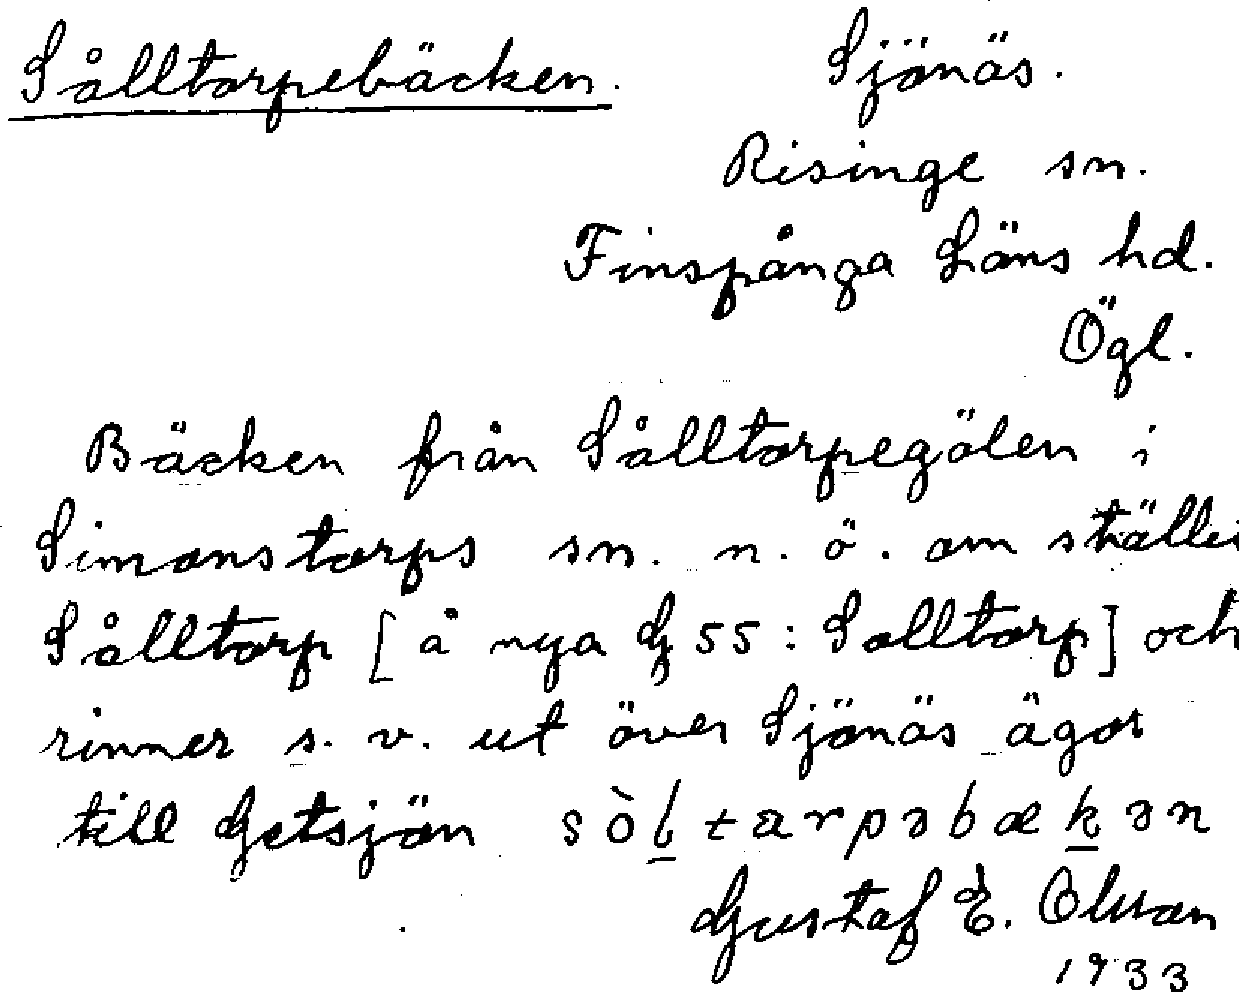 Sålltorpebäcken. Sjönäs.
Risinge sn.
Finspånga Läns hd.
Ögl.
Bäcken från Sålltorpegölen i
Simonstorps sn. n. ö. om stället
Sålltorp [å nya G 55: Solltorp] och
rinner s. v. ut över Sjönäs ägor
till Getsjön
Gustaf E. Olsson
1933